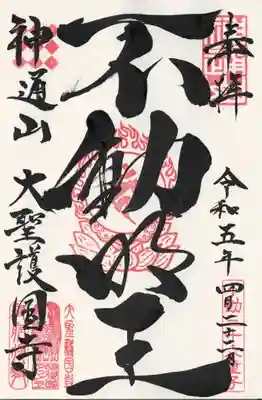 奉拝
令和五年 四月二十二日
不動明王
神通山
大聖護国寺